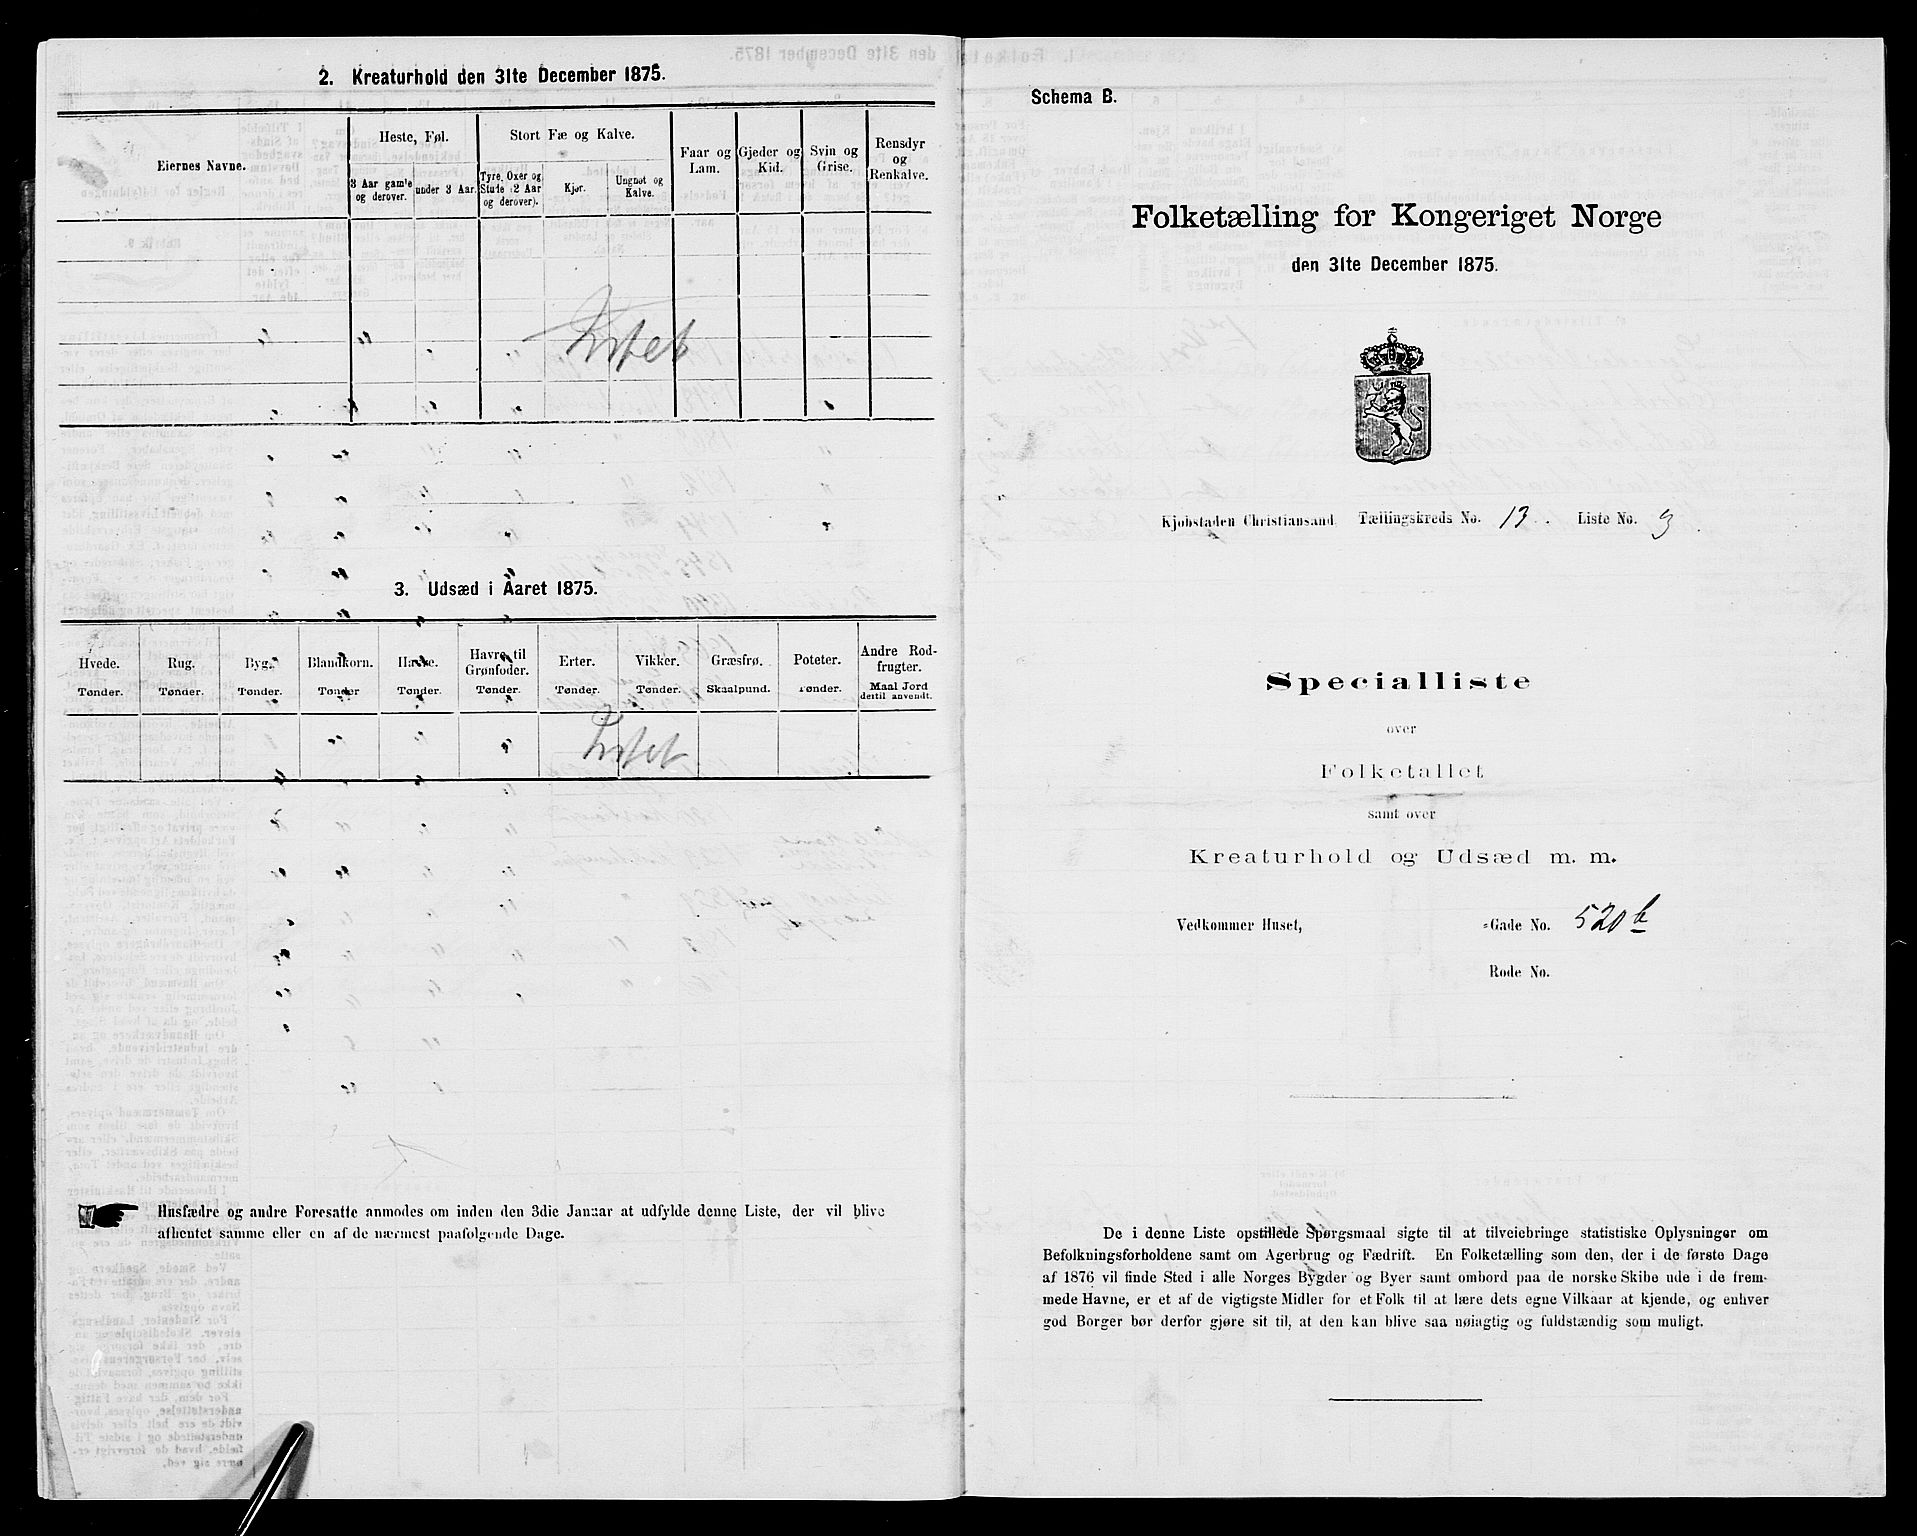 2. Kreaturhold den 31te December 1875.
Eiernes Navne.
Heste, Føl.
3 Aar gamle og derover.
under 3 Aar.
Stort Fæ og Kalve.
Tyre, Oxer og Stude (2 Aar og derover).
Kjør.
Ungnøt og Kalve.
Faar og Lam.
Gjeder og Kid.
Svin og Grise.
Rensdyr og Renkalve.
3. Udsæd i Aaret 1875.
Hvede. Rug. Byg. Blandkorn. Havre. Havre til Grønfoder. Erter. Vikker. Græsfrø. Poteter. Andre Rodfrugter.
Tønder. Tønder. Tønder. Tønder Tønder. Tønder. Tønder. Tønder. Skaalpund. Tønder. Maal Jord dertil anvendt.
Husfædre og andre Foresatte anmodes om inden den 3die Januar at udfylde denne Liste, der vil blive
afhentet samme eller en af de nærmest paafølgende Dage.
Schema B.
Folketælling for Kongeriget Norge
den 31te December 1875.
Kjøbstaden Christiansand. Tællingskreds No. 13. Liste No. 3
Specialliste
over
Folketallet
samt over
Kreaturhold og Udsæd m. m.
Vedkommer Huset, -Gade No. 520 b
Rode No.
De i denne Liste opstillede Spørgsmaal sigte til at tilveiebringe statistiske Oplysninger om
Befolkningsforholdene samt om Agerbrug og Fædrift. En Folketælling som den, der i de første Dage
af 1876 vil finde Sted i alle Norges Bygder og Byer samt ombord paa de norske Skibe ude i de frem-
mede Havne, er et af de vigtigste Midler for et Folk til at lære dets egne Vilkaar at kjende, og enhver
god Borger bør derfor gjøre sit til, at den kan blive saa nøiagtig og fuldstændig som muligt.